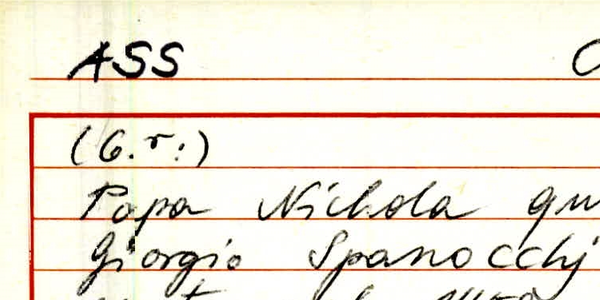 ASS
(G.r.)
Papa Nichola qu
Giorgio Spanocchj